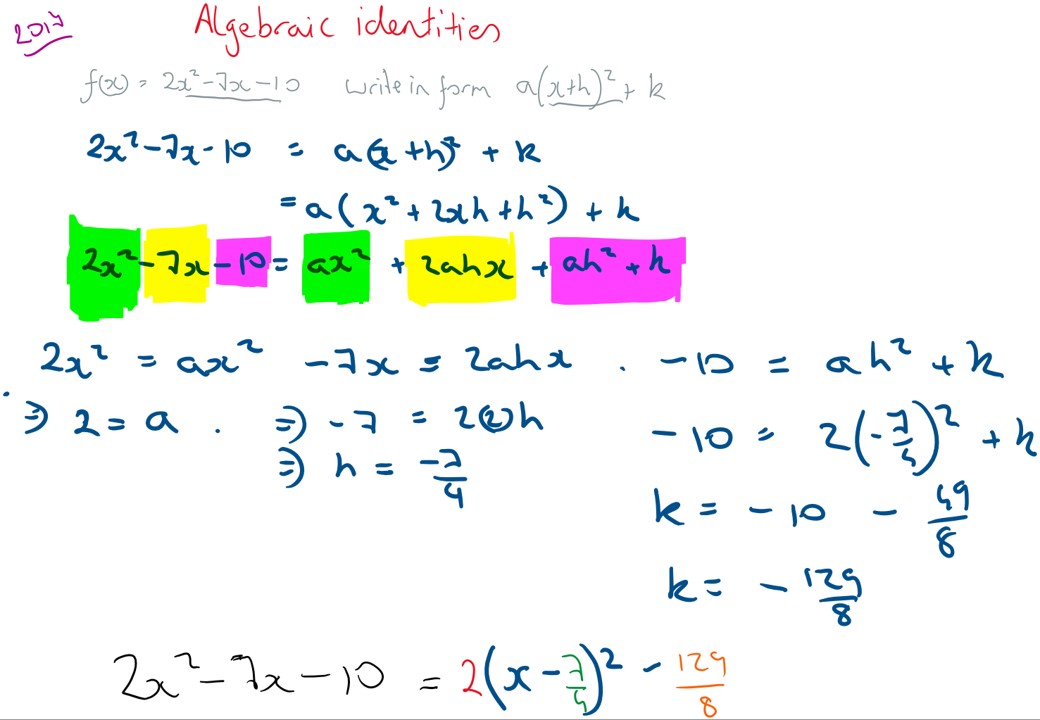 2017
Algebraic identities
f(x) = 2x²-7x-10 write in form a(x+h)² + k
2x²-7x-10 = a(x+h)² + k
= a(x²+2xh+h²) + k
2x²-7x-10 = ax² + 2ahx + ah² + k
2x² = ax² -7x = 2ahx . -10 = ah² + k
⇒ 2 = a . ⇒ -7 = 2(2)h -10 = 2(-7/4)² + k
⇒ h = -7/4
k = -10 - 49/8
k = -129/8
2x²-7x-10 = 2(x-7/4)² - 129/8